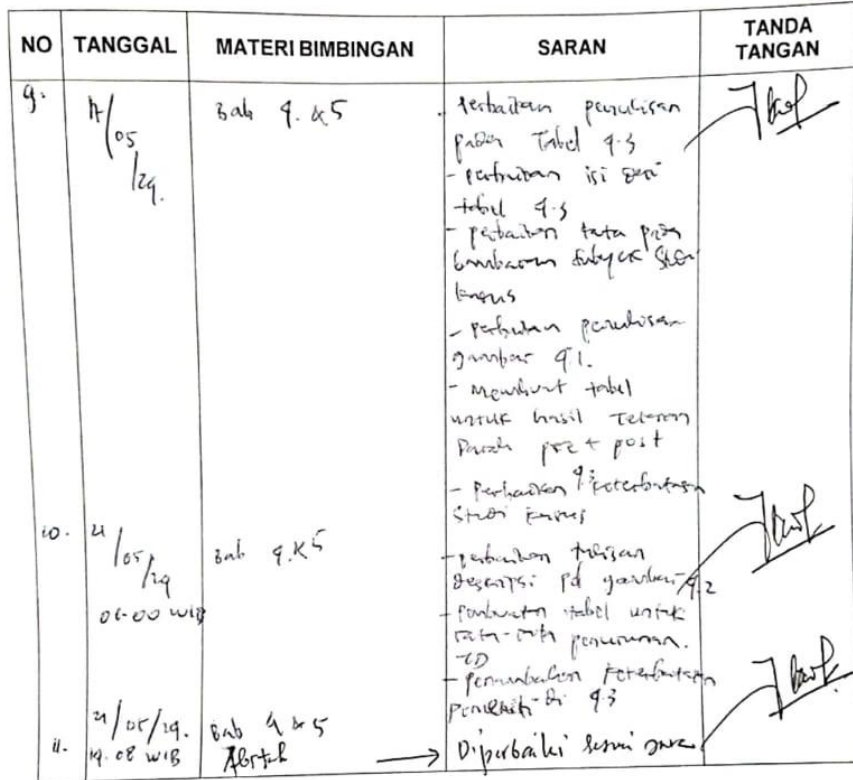 NO TANGGAL MATERI BIMBINGAN SARAN TANDA TANGAN
9. 17/05/24. Bab 4. & 5
- Perbaikan penulisan
pada Tabel 4.3
- perbaikan isi dari
tabel 4.3
- perbaikan tata pada
gambaran subyek studi
kasus
- perbaikan penulisan
gambar 4.1.
- Membuat tabel
untuk hasil Tekanan
Darah pre + post
- Perbaikan 4.3 keterbatasan
Studi kasus
10. 21/05/24 Bab 4. & 5
WIB
- perbaikan tulisan
Deskripsi pd gambar 4.2
- Pembuatan tabel untuk
rata-rata penurunan.
TD
- penambahan keterbatasan
peneliti di 4.3
11. 21/05/24. Bab 4 & 5
19.08 WIB Abstrak → Diperbaiki sesuai saran